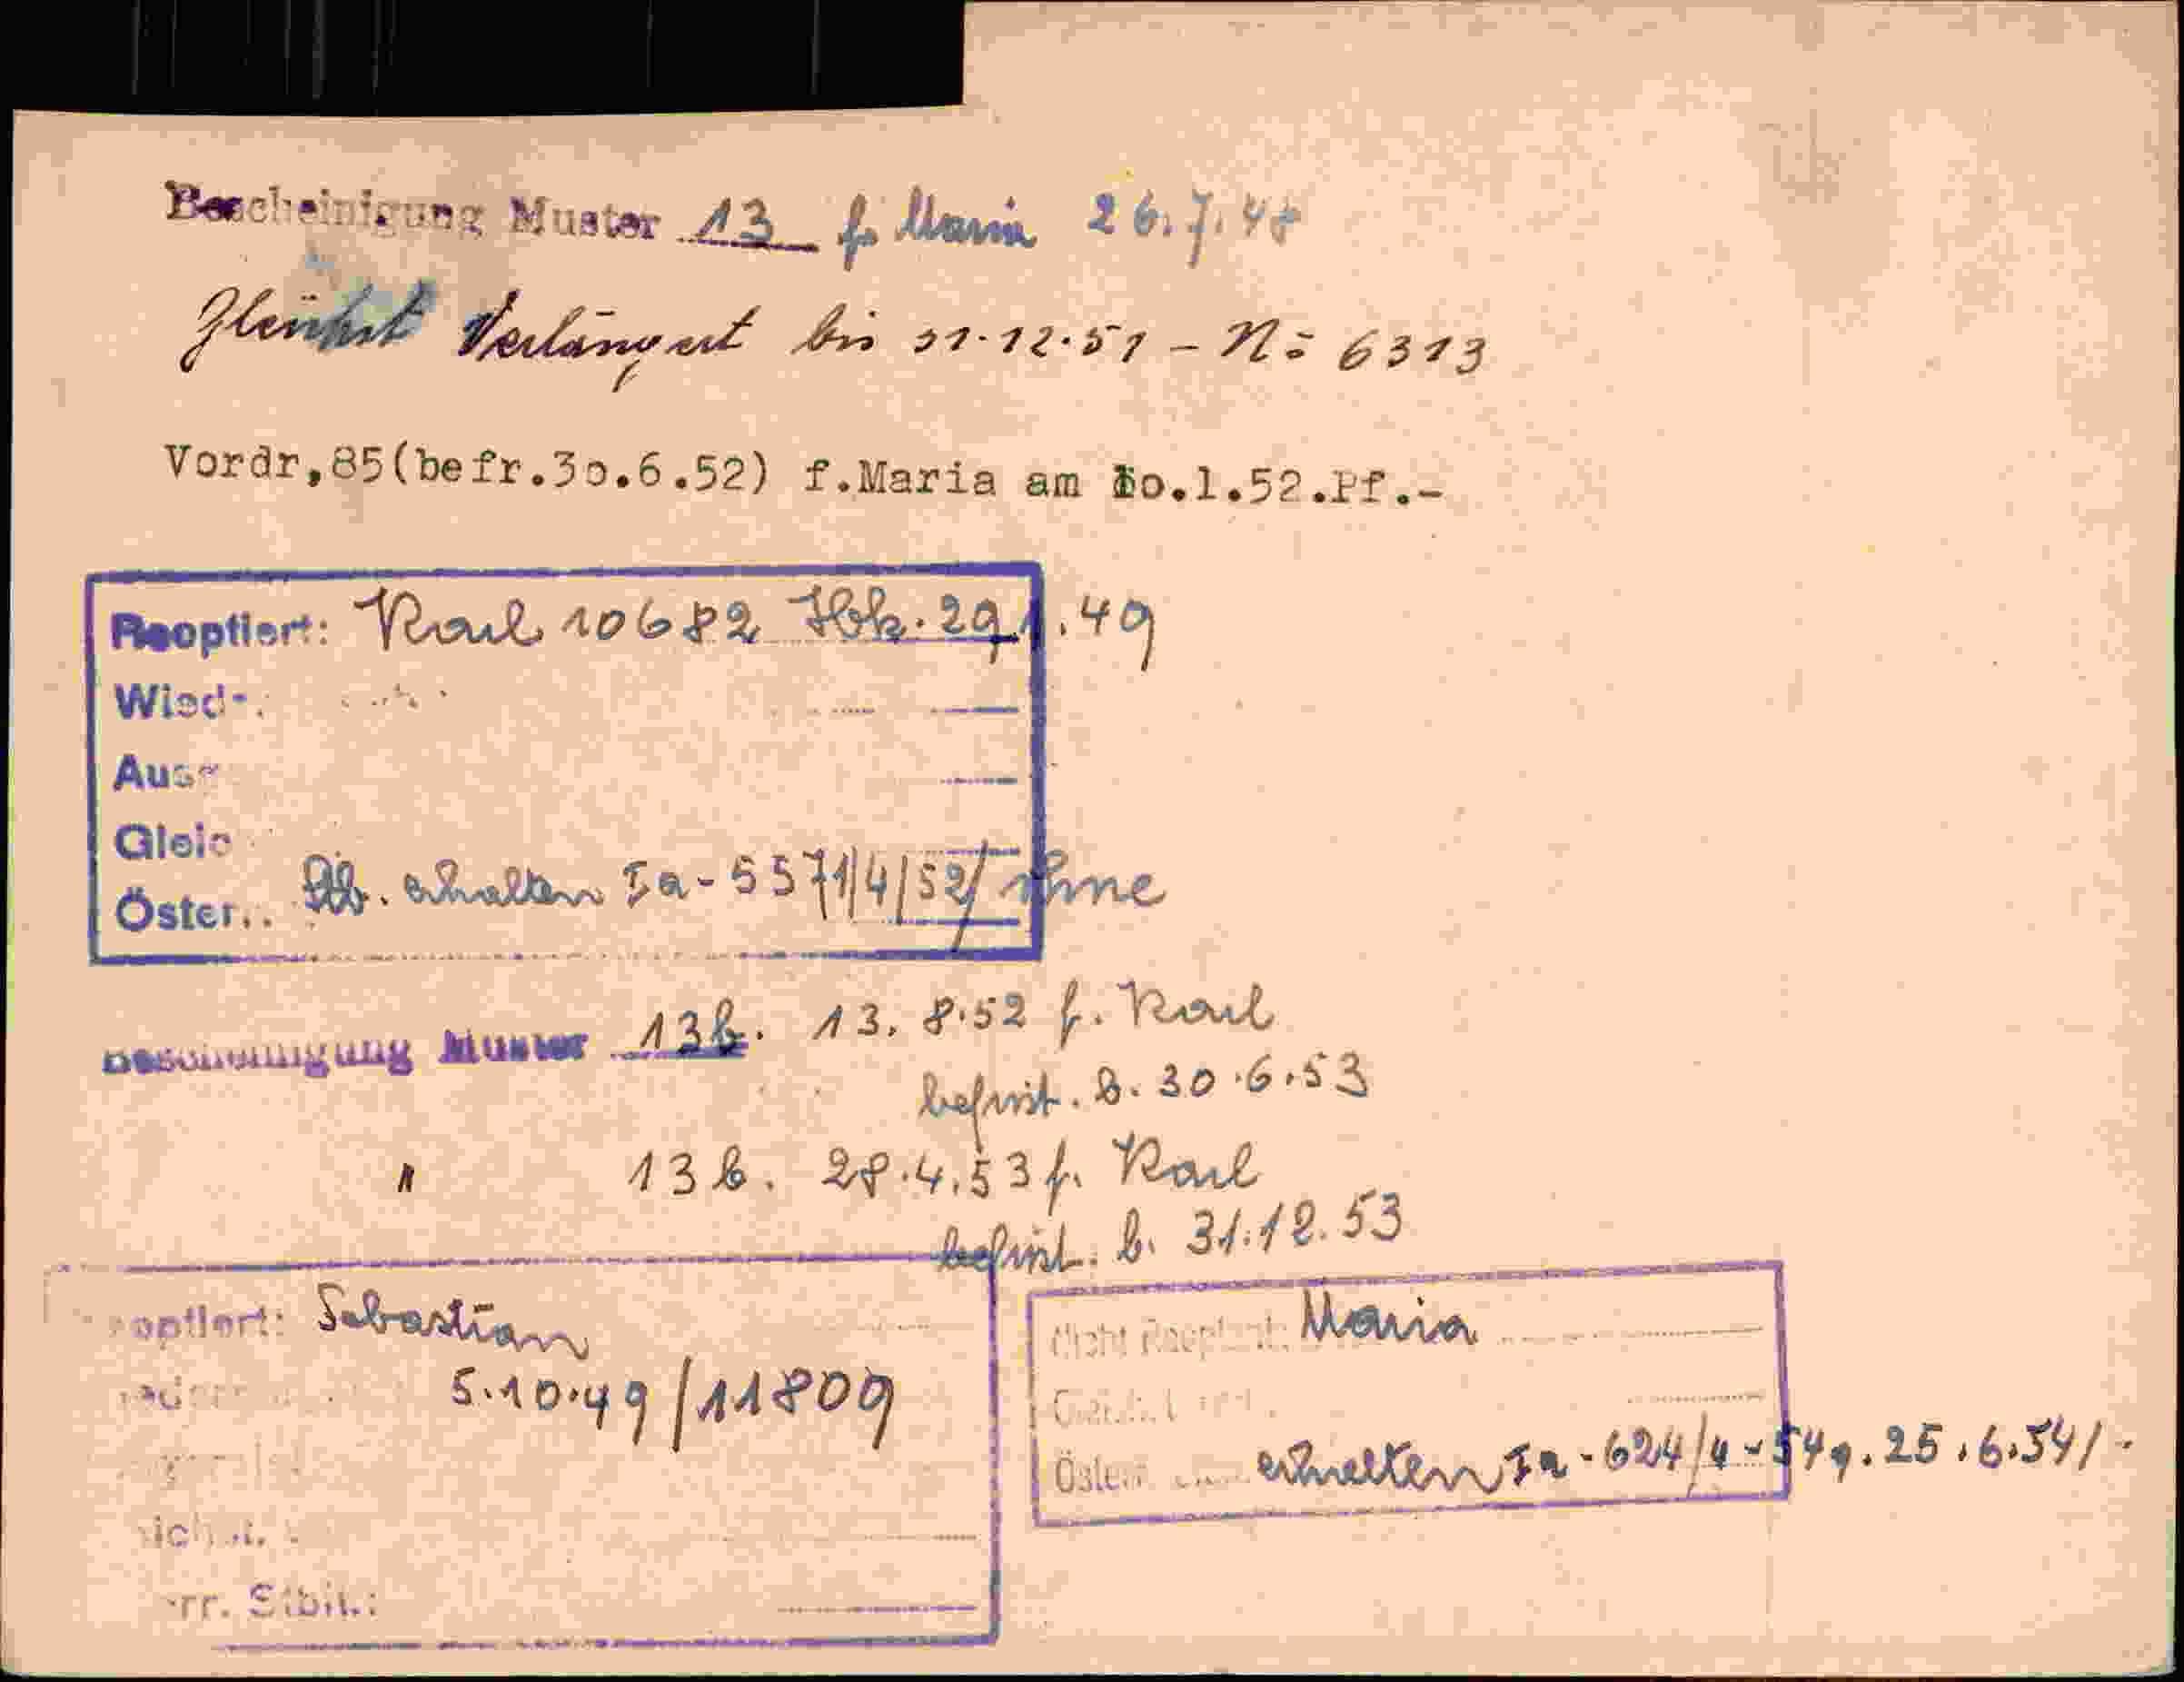 Bescheinigung Muster 13 f. Maria 26.7.48
Verlängert bis 31.12.51 - N= 6313
Vordr,85(befr.30.6.52) f.Maria am 10.1.52.Pf.-
Reoptiert: Karl 10682 Ibk. 29.1.49
Wied
Aus
Gleic
Öster.. Stb. erhalten Ia-5571/4/52/ ohne
Bescheinigung Muster 13b. 13.8.52 f. Karl
befrist. b. 30.6.53
" 13b. 28.4.53 f. Karl
befrist. b. 31.12.53
optiert: Sebastian
5.10.49/11809
rr. Stbit.:
Nicht Reoptiert: Maria
Österr erhalten Ia-624/4-54 g. 25.6.54/-